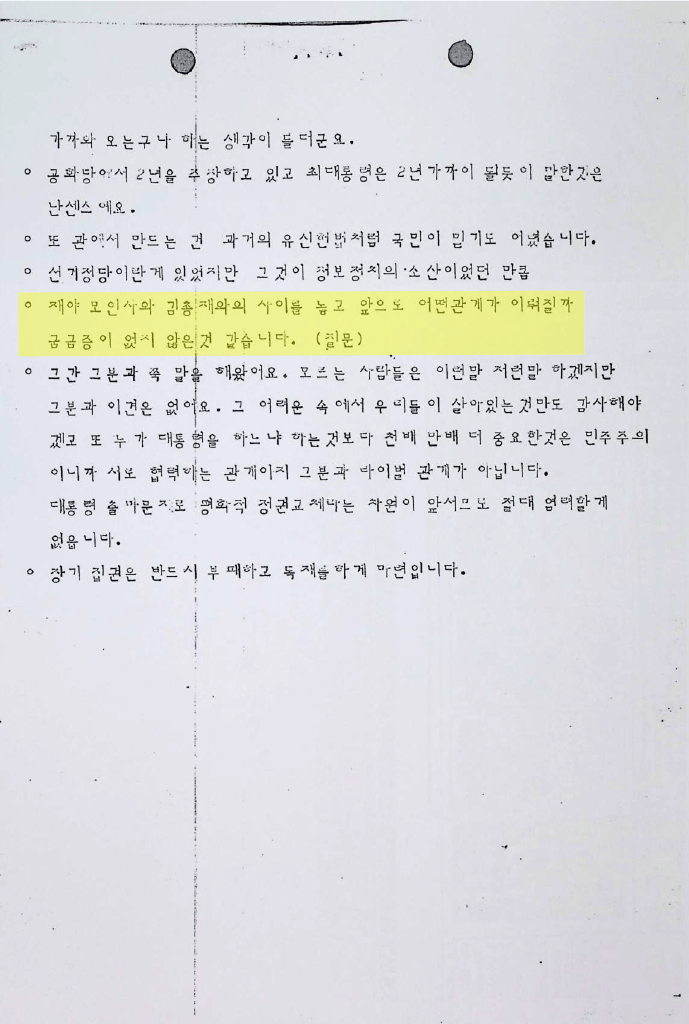 가까와 오는구나 하는 생각이 들더군요.
o 공화당에서 2년을 주장하고 있고 최대통령은 2년가까이 될듯이 말한것은
난센스예요.
o 또 관에서 만드는 건 과거의 유신헌법처럼 국민이 믿기도 어렵습니다.
o 선거정담이란게 있었지만 그것이 정보정치의 소산이었던 만큼
o 재야 모인사와 김총재와의 사이를 놓고 앞으로 어떤관계가 이뤄질까
궁금증이 없지 않은것 같습니다. (질문)
o 그간 그분과 쭉 말을 해왔어요. 모르는 사람들은 이런말 저런말 하겠지만
그분과 이견은 없어요. 그 어려운 속에서 우리들이 살아있는것만도 감사해야
겠고 또 누가 대통령을 하느냐 하는것보다 천배 만배 더 중요한것은 민주주의
이니까 서로 협력하는 관계이지 그분과 라이벌 관계가 아닙니다.
대통령 출마문제로 평화적 정권교체라는 차원이 앞서므로 절대 염려할게
없읍니다.
o 장기 집권은 반드시 부패하고 독재를하게 마련입니다.